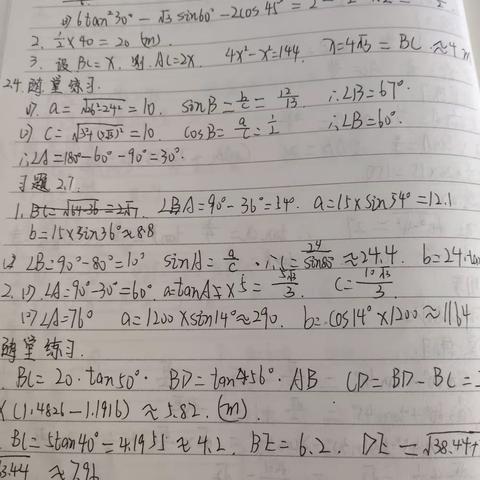 (1) 6tan²30° - √3 sin60° - 2cos45° = 2 -
2. ½×40 = 20 (m).
3. 设BC=X, 则AC=2X. 4x²-x²=144. x=4√3=BC.
2.4. 随堂练习.
(1). a=√26²-24²=10. sinB=b/c=12/13. ∴∠B=67°.
(2) C=√5²+(5√3)²=10. cosB=a/c=½ ∴∠B=60°.
∴∠A=180°-60°-90°=30°.
习题2.7.
1. ∠BA=90°-36°=54°. a=15×sin54°=12.1
b=15×sin36°≈8.8
(2) ∠B=90°-80°=10° sinA=a/c. ∴C=24/sin80°≈24.4. b=24.tan
2. (1). ∠A=90°-30°=60°. a=tanA×5=5√3/3. C=10√3/3.
(2) ∠A=76° a=1200×sin14°≈290. b=cos14°×1200≈1164
随堂练习.
BC=20·tan50°. BD=tan56°·AB CD=BD-BC=
×(1.4826-1.1916)≈5.82.(m).
BC=5tan40°=4.1955≈4.2. BE=6.2. DE=√38.44+
3.44 ≈7.96